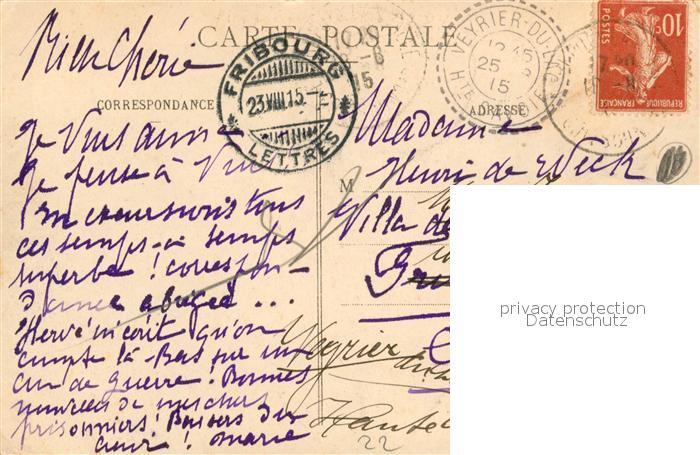 CARTE POSTALE
CORRESPONDANCE
ADRESSE
Bien Chérie
Je vous aime
Je pense à Vous
en excursions tous
ces temps-ci temps
superbe! correspon-
dance abrégée ...
Hervé m'écrit qu'on
compte là-bas sur un
an de guerre! Bonnes
nouvelles de mes chers
prisonniers! Baisers du
cœur! Marie
FRIBOURG
23.VIII.15.
LETTRES
VEYRIER-DU-LAC
25
15
Hte
10c
POSTES
REPUBLIQUE FRANÇAISE
Madame
M Henri de Weck
Villa
Veyrier
Haute
22
privacy protection
Datenschutz